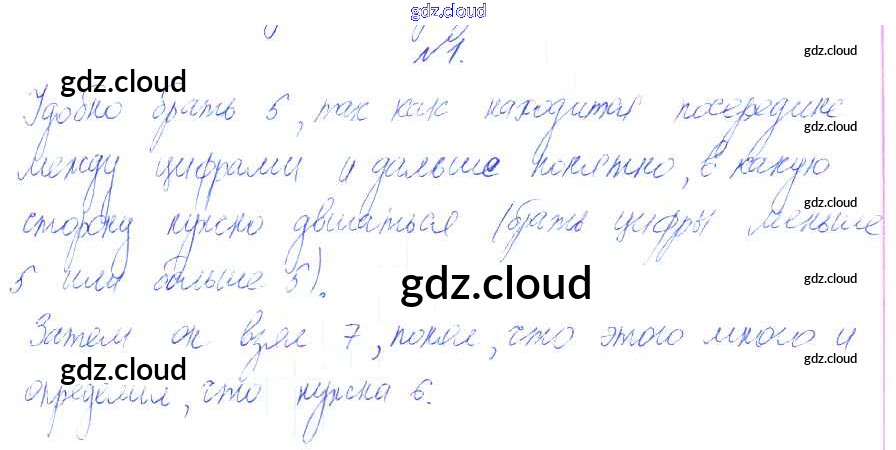 gdz.cloud
№1.
gdz.cloud
gdz.cloud
Удобно брать 5, так как находится посередине
gdz.cloud
между цифрами и дальше понятно, в какую
gdz.cloud
сторону нужно двигаться (брать цифры меньше
5 или больше 5).
gdz.cloud
gdz.cloud
Затем он взял 7, понял, что этого много и
gdz.cloud
gdz.cloud
определил, что нужна 6.